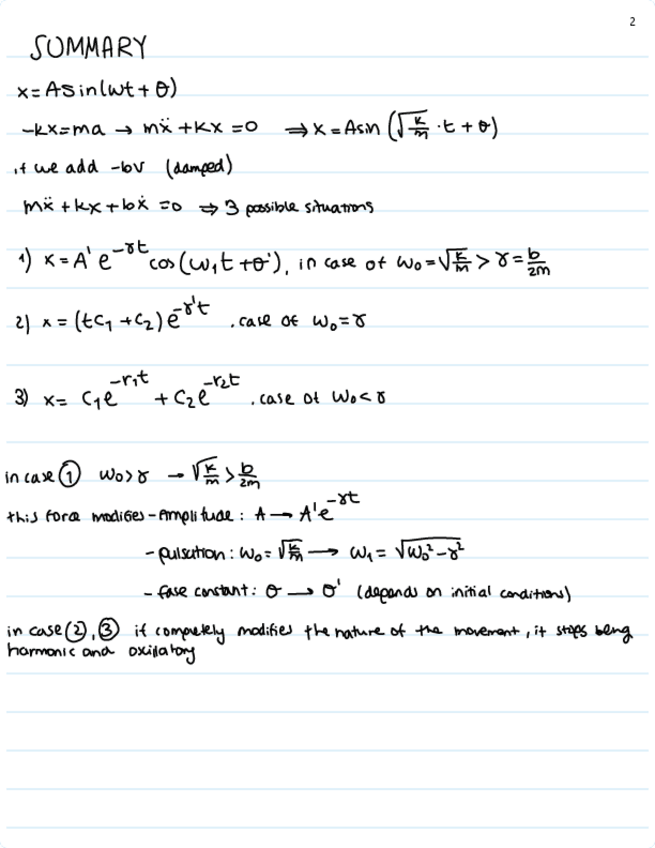 2
SUMMARY
x=Asin(ωt+θ)
-kx=ma → mẍ+kx=0 ⇒ x=Asin(√(k/m)·t+θ)
if we add -bv (damped)
mẍ+kx+bẋ=0 ⇒ 3 possible situations
1) x=A'e^(-γt) cos(ω₁t+θ'), in case of ω₀=√(k/m) > γ=b/2m
2) x=(tC₁+C₂)e^(-γ't) . case of ω₀=γ
3) x= C₁e^(-r₁t) + C₂e^(-r₂t) . case of ω₀<γ
in case ① ω₀>γ → √(k/m) > b/2m
this force modifies - Amplitude: A → A'e^(-γt)
- pulsation: ω₀=√(k/m) → ω₁=√(ω₀²-γ²)
- fase constant: θ → θ' (depends on initial conditions)
in case ②,③ it completely modifies the nature of the movement, it stops being
harmonic and oxilatory